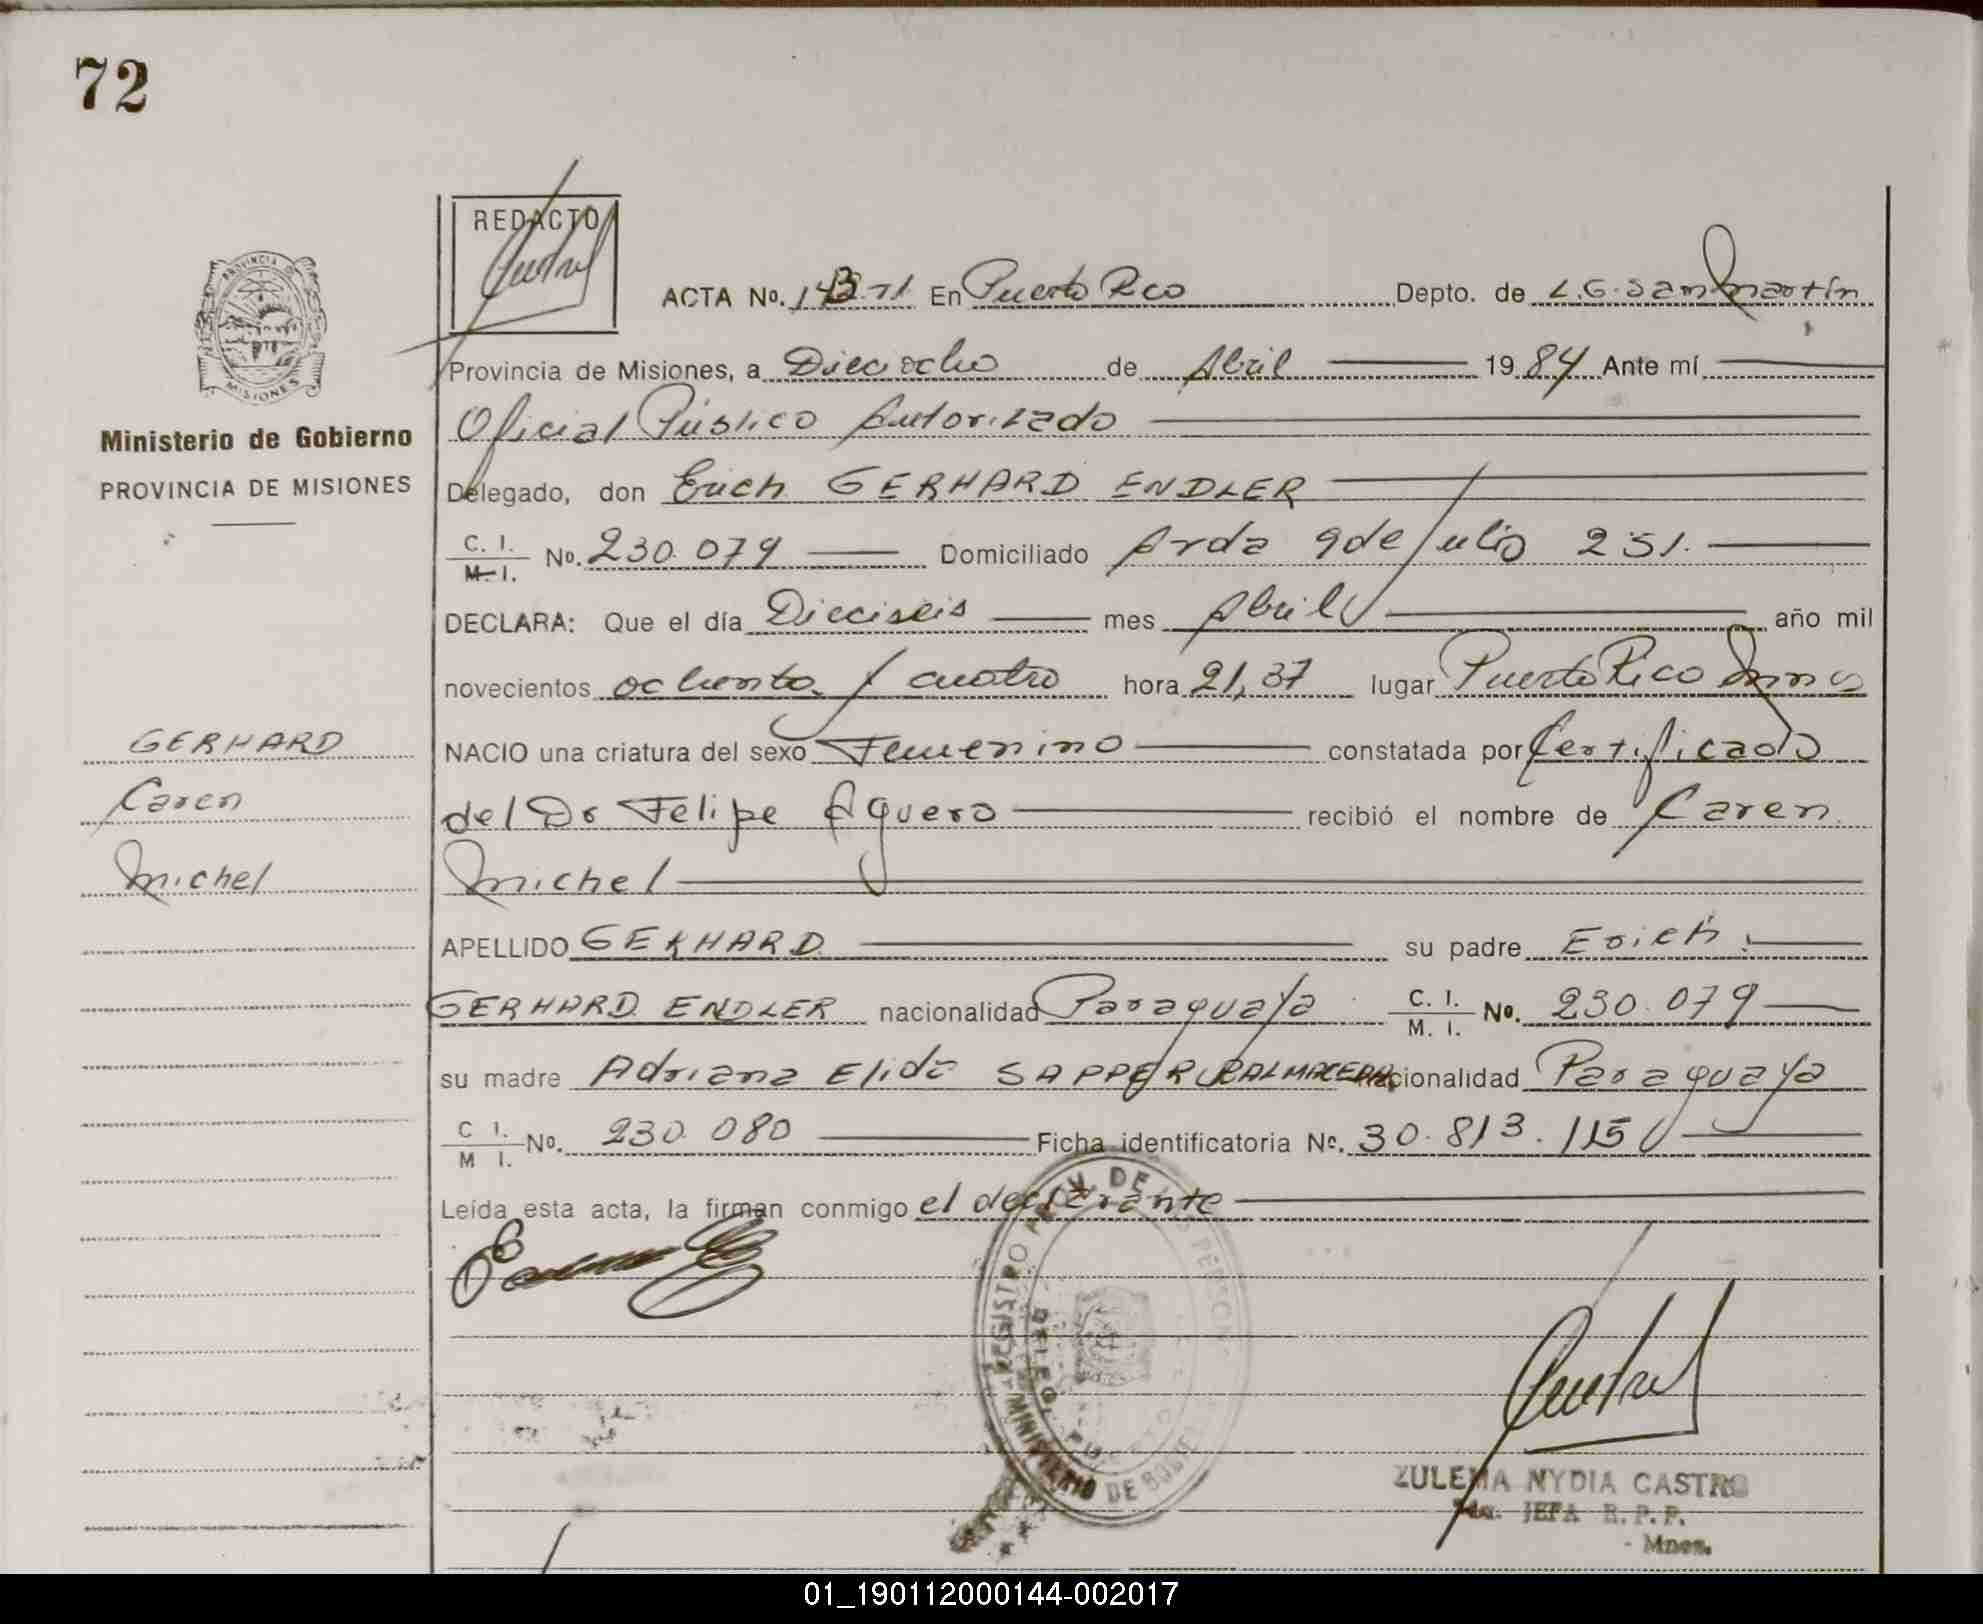 72
REDACTO
PROVINCIA DE
MISIONES
Ministerio de Gobierno
PROVINCIA DE MISIONES
ACTA No. En Puerto Rico Depto. de L.G. San Martín
Provincia de Misiones, a Dieciocho de Abril 1984 Ante mí
Oficial Público Autorizado
Delegado, don Erich GERHARD ENDLER
C. I. M. I. No. 230.079 Domiciliado Avda 9 de Julio 251.
DECLARA: Que el día Dieciseis mes Abril año mil
novecientos ochenta y cuatro hora 21,37 lugar Puerto Rico Mnes
NACIO una criatura del sexo Femenino constatada por Certificado
del Dr Felipe Aguero recibió el nombre de Caren
Michel
APELLIDO GERHARD su padre Erich
GERHARD ENDLER nacionalidad Paraguaya C. I. M. I. No. 230.079
su madre Adriana Elida SAPPER nacionalidad Paraguaya
C I. M I. No. 230.080 Ficha identificatoria No. 30.813.115
Leída esta acta, la firman conmigo el declarante
GERHARD
Caren
Michel
REGISTRO DE LAS PERSONAS
MINISTERIO DE GOBIERNO
ZULEMA NYDIA CASTRO
JEFA R. P. P.
Mnes.
01_190112000144-002017